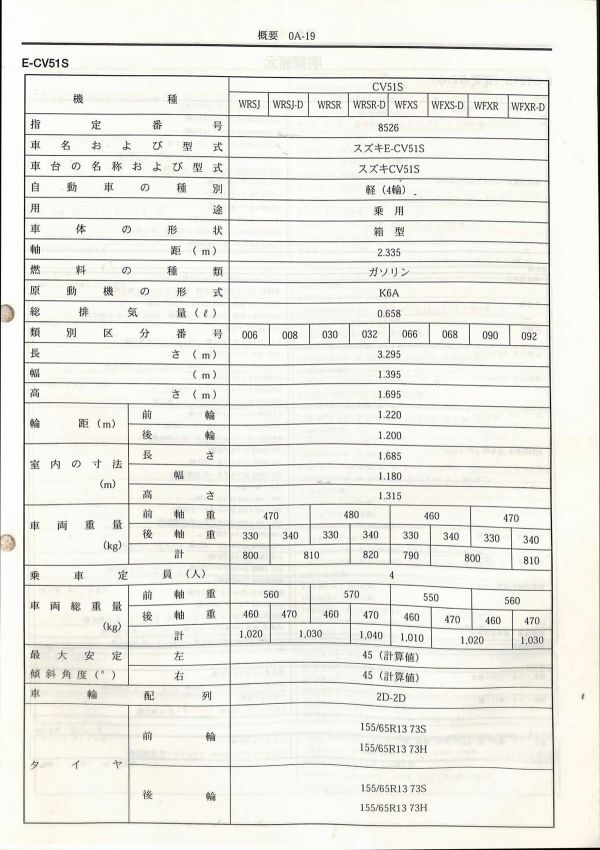 概要 0A-19
E-CV51S
機 種 CV51S
WRSJ WRSJ-D WRSR WRSR-D WFXS WFXS-D WFXR WFXR-D
指定番号 8526
車名および型式 スズキE-CV51S
車台の名称および型式 スズキCV51S
自動車の種別 軽（4輪）
用途 乗 用
車体の形状 箱 型
軸距（m） 2.335
燃料の種類 ガソリン
原動機の形式 K6A
総排気量（ℓ） 0.658
類別区分番号 006 008 030 032 066 068 090 092
長さ（m） 3.295
幅（m） 1.395
高さ（m） 1.695
輪距（m） 前輪 1.220
後輪 1.200
室内の寸法（m） 長さ 1.685
幅 1.180
高さ 1.315
車両重量（kg） 前軸重 470 480 460 470
後軸重 330 340 330 340 330 340 330 340
計 800 810 820 790 800 810
乗車定員（人） 4
車両総重量（kg） 前軸重 560 570 550 560
後軸重 460 470 460 470 460 470 460 470
計 1,020 1,030 1,040 1,010 1,020 1,030
最大安定傾斜角度（°） 左 45（計算値）
右 45（計算値）
車輪配列 2D-2D
タイヤ 前輪 155/65R13 73S
155/65R13 73H
後輪 155/65R13 73S
155/65R13 73H